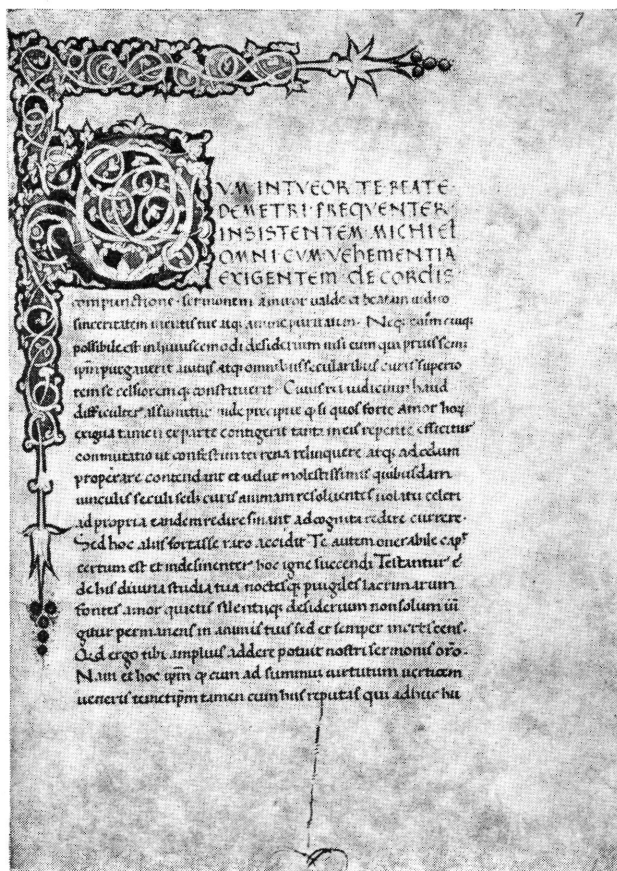 7
CVM INTVEOR TE BEATE
DEMETRI FREQVENTER
INSISTENTEM MICHI et
OMNI CVM VEHEMENTIA
EXIGENTEM de CORdIS
compunctione sermonem admiror ualde et beatam
sinceritatem mentis tue atq; anime puritatem. Neq; enim cuiq;
possibile est in huiuscemodi desiderium nisi eum qui prius semet
ipm purgauerit atq; omnibus secularibus curis superio
rem se celsioremq; constituerit. Cuius rei indicium haud
difficulter assumitur inde precipue q si quos forte Amor hoq
exigua tamen ex parte contigerit tanta in eis repente efficitur
conmutatio ut confestim terrena relinquere atq; ad celum
properare contendant et uelut molestissimis quibusdam
uinculis seculi curis animam resoluentes uolatu celeri
ad propria eandem redire sinant ad cognita redire currere.
Sed hoc aliis fortasse raro accidit Te autem onerabile
certum est et indesinenter hoc igne succendi Testantur
de his diuina studia tua noctesq; puigiles lacrimarum
fontes amor quietis silentiiq; desiderium non solum
gitur permanens in animis tuis sed et semper
Qd ergo tibi amplius addere potuit nostri sermonis oro.
Nam et hoc ipm q cum ad summum uirtutum uerticem
ueneris temetipm tamen cum his reputas qui adhuc hu